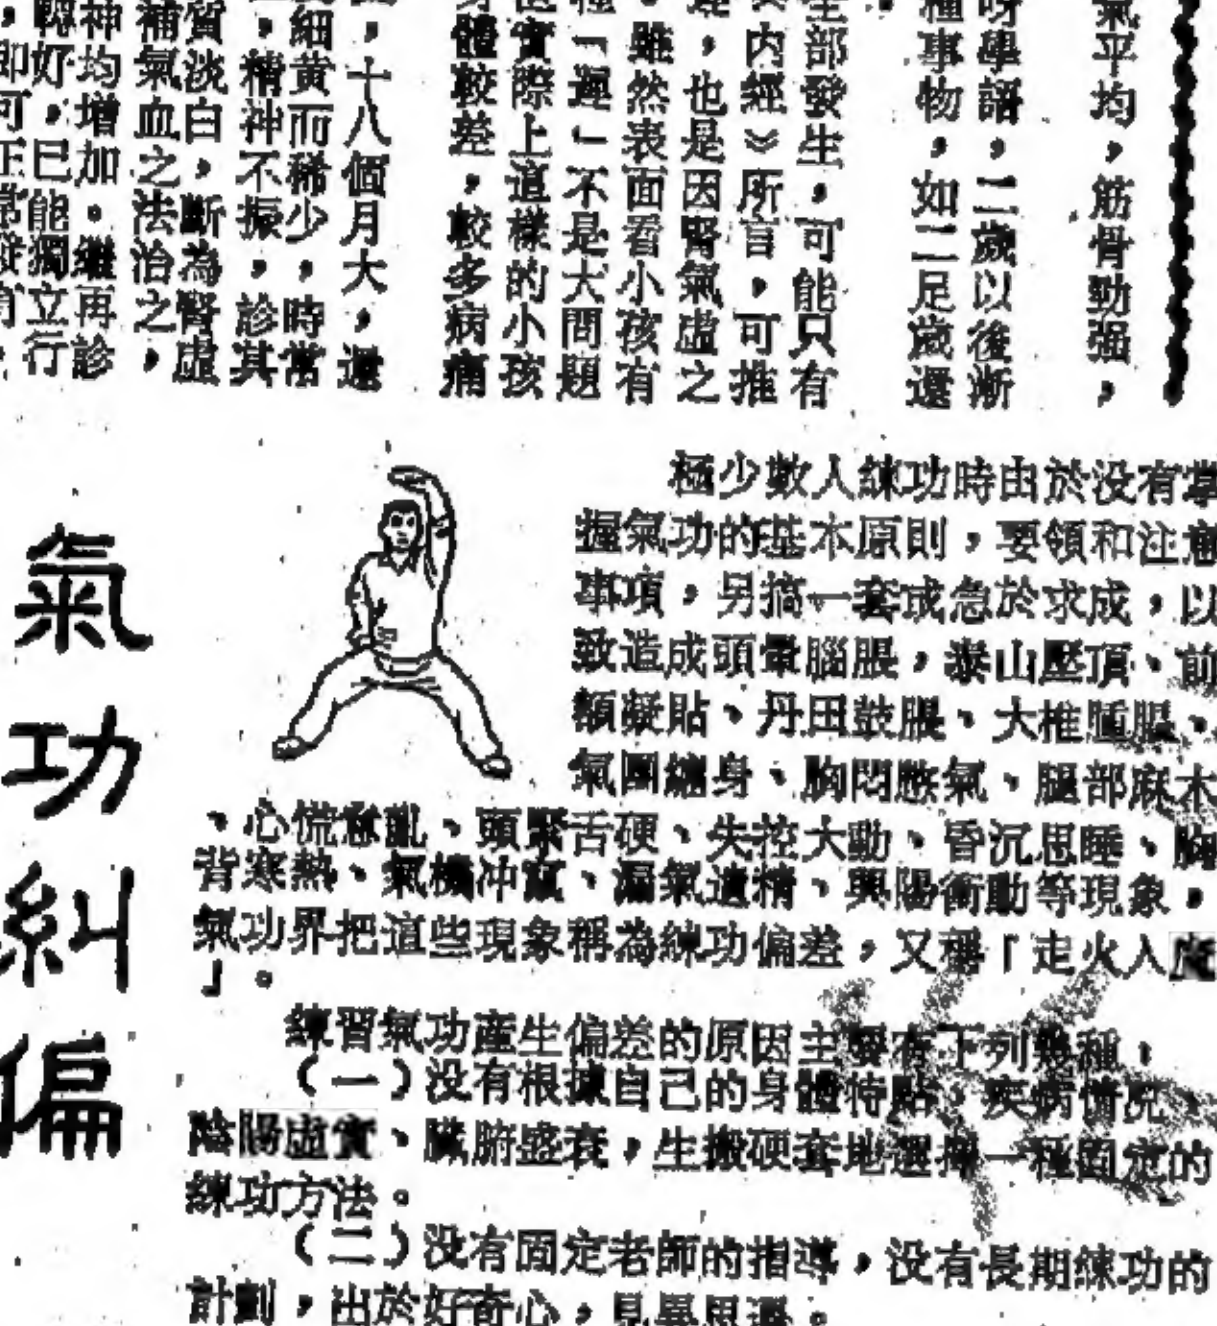 氣平均，筋骨勁强，
呀學語，二歲以後漸
種事物，如二足歲還
部發生，可能只有
内經》所言，可推
，也是因腎氣虚之
雖然表面看小孩有
「遲」不是大問題
實際上這樣的小孩
體較差，較多病痛
，十八個月大，還
細黄而稀少，時常
，精神不振，診其
質淡白，斷為腎虚
補氣血之法治之，
神均增加。繼再診
好，已能獨立行
即可正常發育
氣功糾偏
極少數人練功時由於没有掌
握氣功的基本原則，要領和注意
事項，另搞一套或急於求成，以
致造成頭暈腦脹，泰山壓頂、前
額凝貼、丹田鼓脹、大椎腫脹、
氣團纏身、胸悶憋氣、腿部麻木
、心慌意亂、頭緊舌硬、失控大動、昏沉思睡、胸
背寒熱、氣機冲竄、漏氣遺精、興陽衝動等現象，
氣功界把這些現象稱為練功偏差，又稱「走火入魔
」。
練習氣功產生偏差的原因主要有下列幾種，
（一）没有根據自己的身體特點、疾病情况、
陰陽虚實、臟腑盛衰，生搬硬套地選擇一種固定的
練功方法。
（二）没有固定老師的指導，没有長期練功的
計劃，出於好奇心，見異思遷。